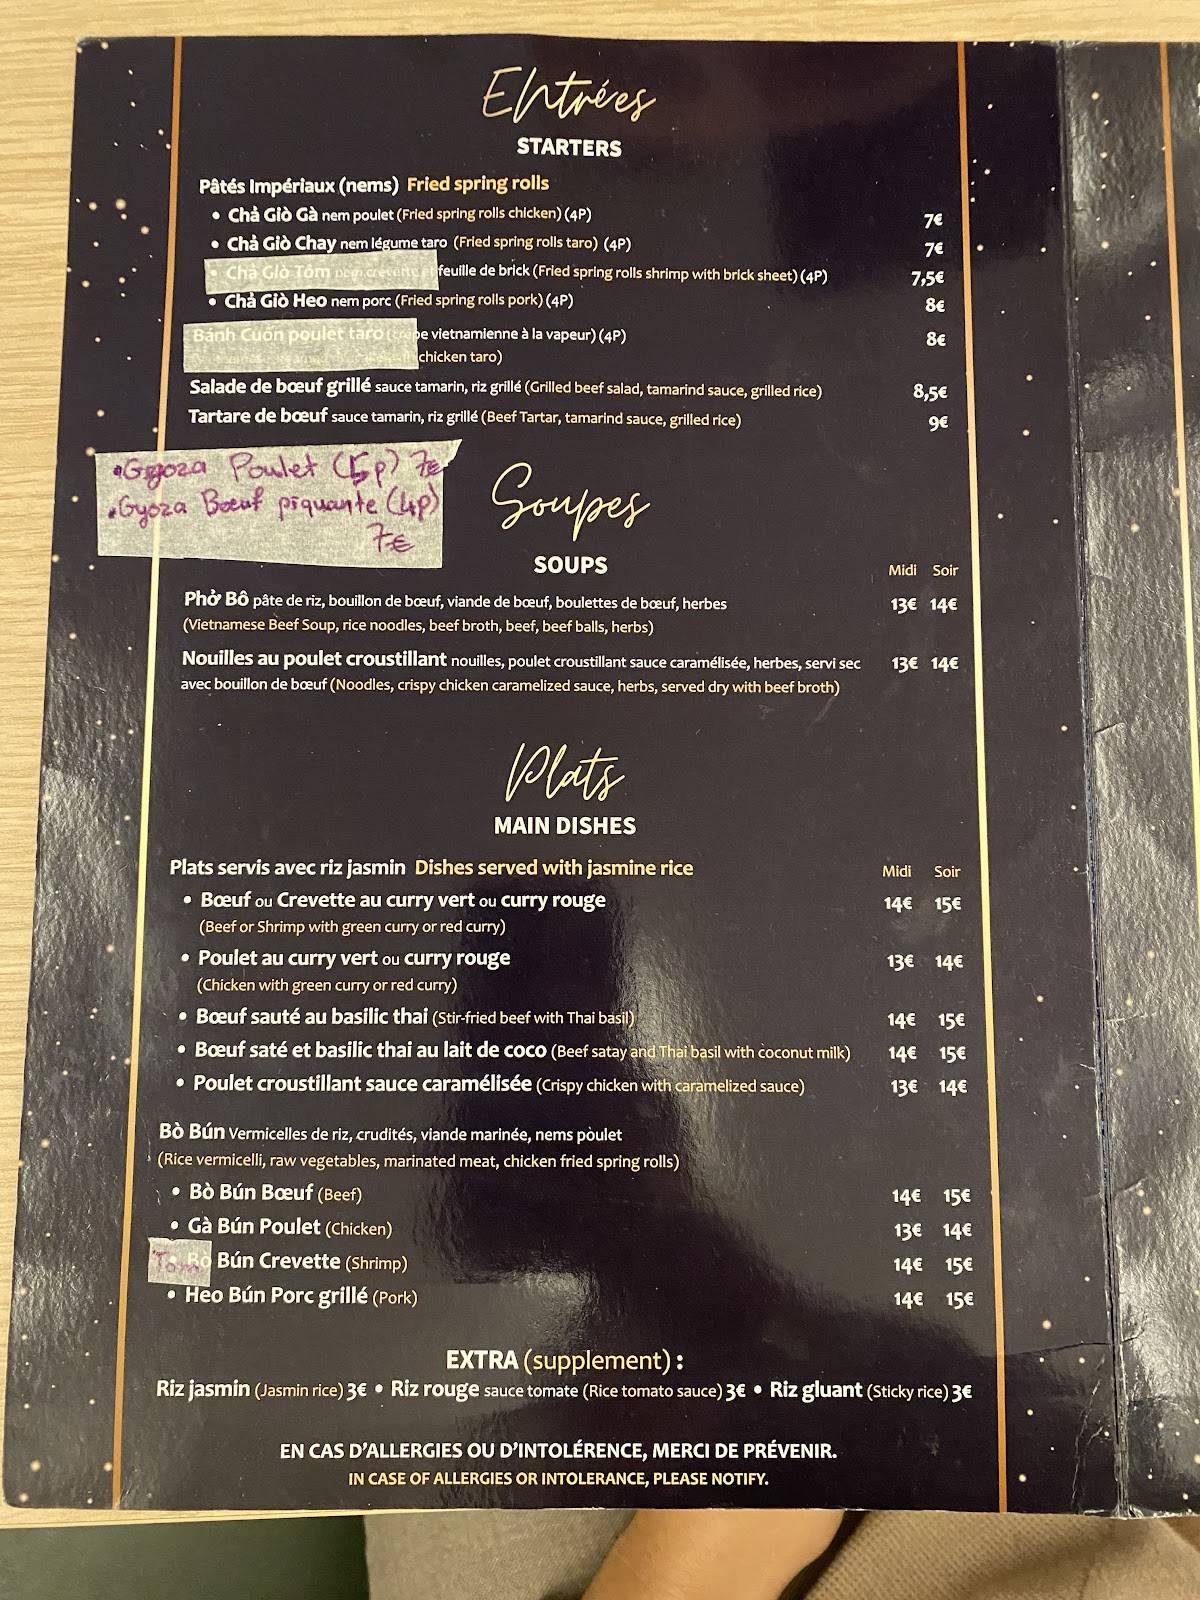 Entrées
STARTERS
Pâtés Impériaux (nems) Fried spring rolls
• Chả Giò Gà nem poulet (Fried spring rolls chicken) (4P) 7€
• Chả Giò Chay nem légume taro (Fried spring rolls taro) (4P) 7€
• Chả Giò Tôm nem crevette et feuille de brick (Fried spring rolls shrimp with brick sheet) (4P) 7,5€
• Chả Giò Heo nem porc (Fried spring rolls pork) (4P) 8€
Bánh Cuốn poulet taro (crêpe vietnamienne à la vapeur) (4P) 8€
chicken taro)
Salade de bœuf grillé sauce tamarin, riz grillé (Grilled beef salad, tamarind sauce, grilled rice) 8,5€
Tartare de bœuf sauce tamarin, riz grillé (Beef Tartar, tamarind sauce, grilled rice) 9€
• Gyoza Poulet (5p) 7€
• Gyoza Bœuf piquante (4p)
7€
Soupes
SOUPS
Midi Soir
Phở Bô pâte de riz, bouillon de bœuf, viande de bœuf, boulettes de bœuf, herbes 13€ 14€
(Vietnamese Beef Soup, rice noodles, beef broth, beef, beef balls, herbs)
Nouilles au poulet croustillant nouilles, poulet croustillant sauce caramélisée, herbes, servi sec 13€ 14€
avec bouillon de bœuf (Noodles, crispy chicken caramelized sauce, herbs, served dry with beef broth)
Plats
MAIN DISHES
Plats servis avec riz jasmin Dishes served with jasmine rice Midi Soir
• Bœuf ou Crevette au curry vert ou curry rouge 14€ 15€
(Beef or Shrimp with green curry or red curry)
• Poulet au curry vert ou curry rouge 13€ 14€
(Chicken with green curry or red curry)
• Bœuf sauté au basilic thai (Stir-fried beef with Thai basil) 14€ 15€
• Bœuf saté et basilic thai au lait de coco (Beef satay and Thai basil with coconut milk) 14€ 15€
• Poulet croustillant sauce caramélisée (Crispy chicken with caramelized sauce) 13€ 14€
Bò Bún Vermicelles de riz, crudités, viande marinée, nems poulet
(Rice vermicelli, raw vegetables, marinated meat, chicken fried spring rolls)
• Bò Bún Bœuf (Beef) 14€ 15€
• Gà Bún Poulet (Chicken) 13€ 14€
Tom • Bò Bún Crevette (Shrimp) 14€ 15€
• Heo Bún Porc grillé (Pork) 14€ 15€
EXTRA (supplement) :
Riz jasmin (Jasmin rice) 3€ • Riz rouge sauce tomate (Rice tomato sauce) 3€ • Riz gluant (Sticky rice) 3€
EN CAS D'ALLERGIES OU D'INTOLÉRENCE, MERCI DE PRÉVENIR.
IN CASE OF ALLERGIES OR INTOLERANCE, PLEASE NOTIFY.